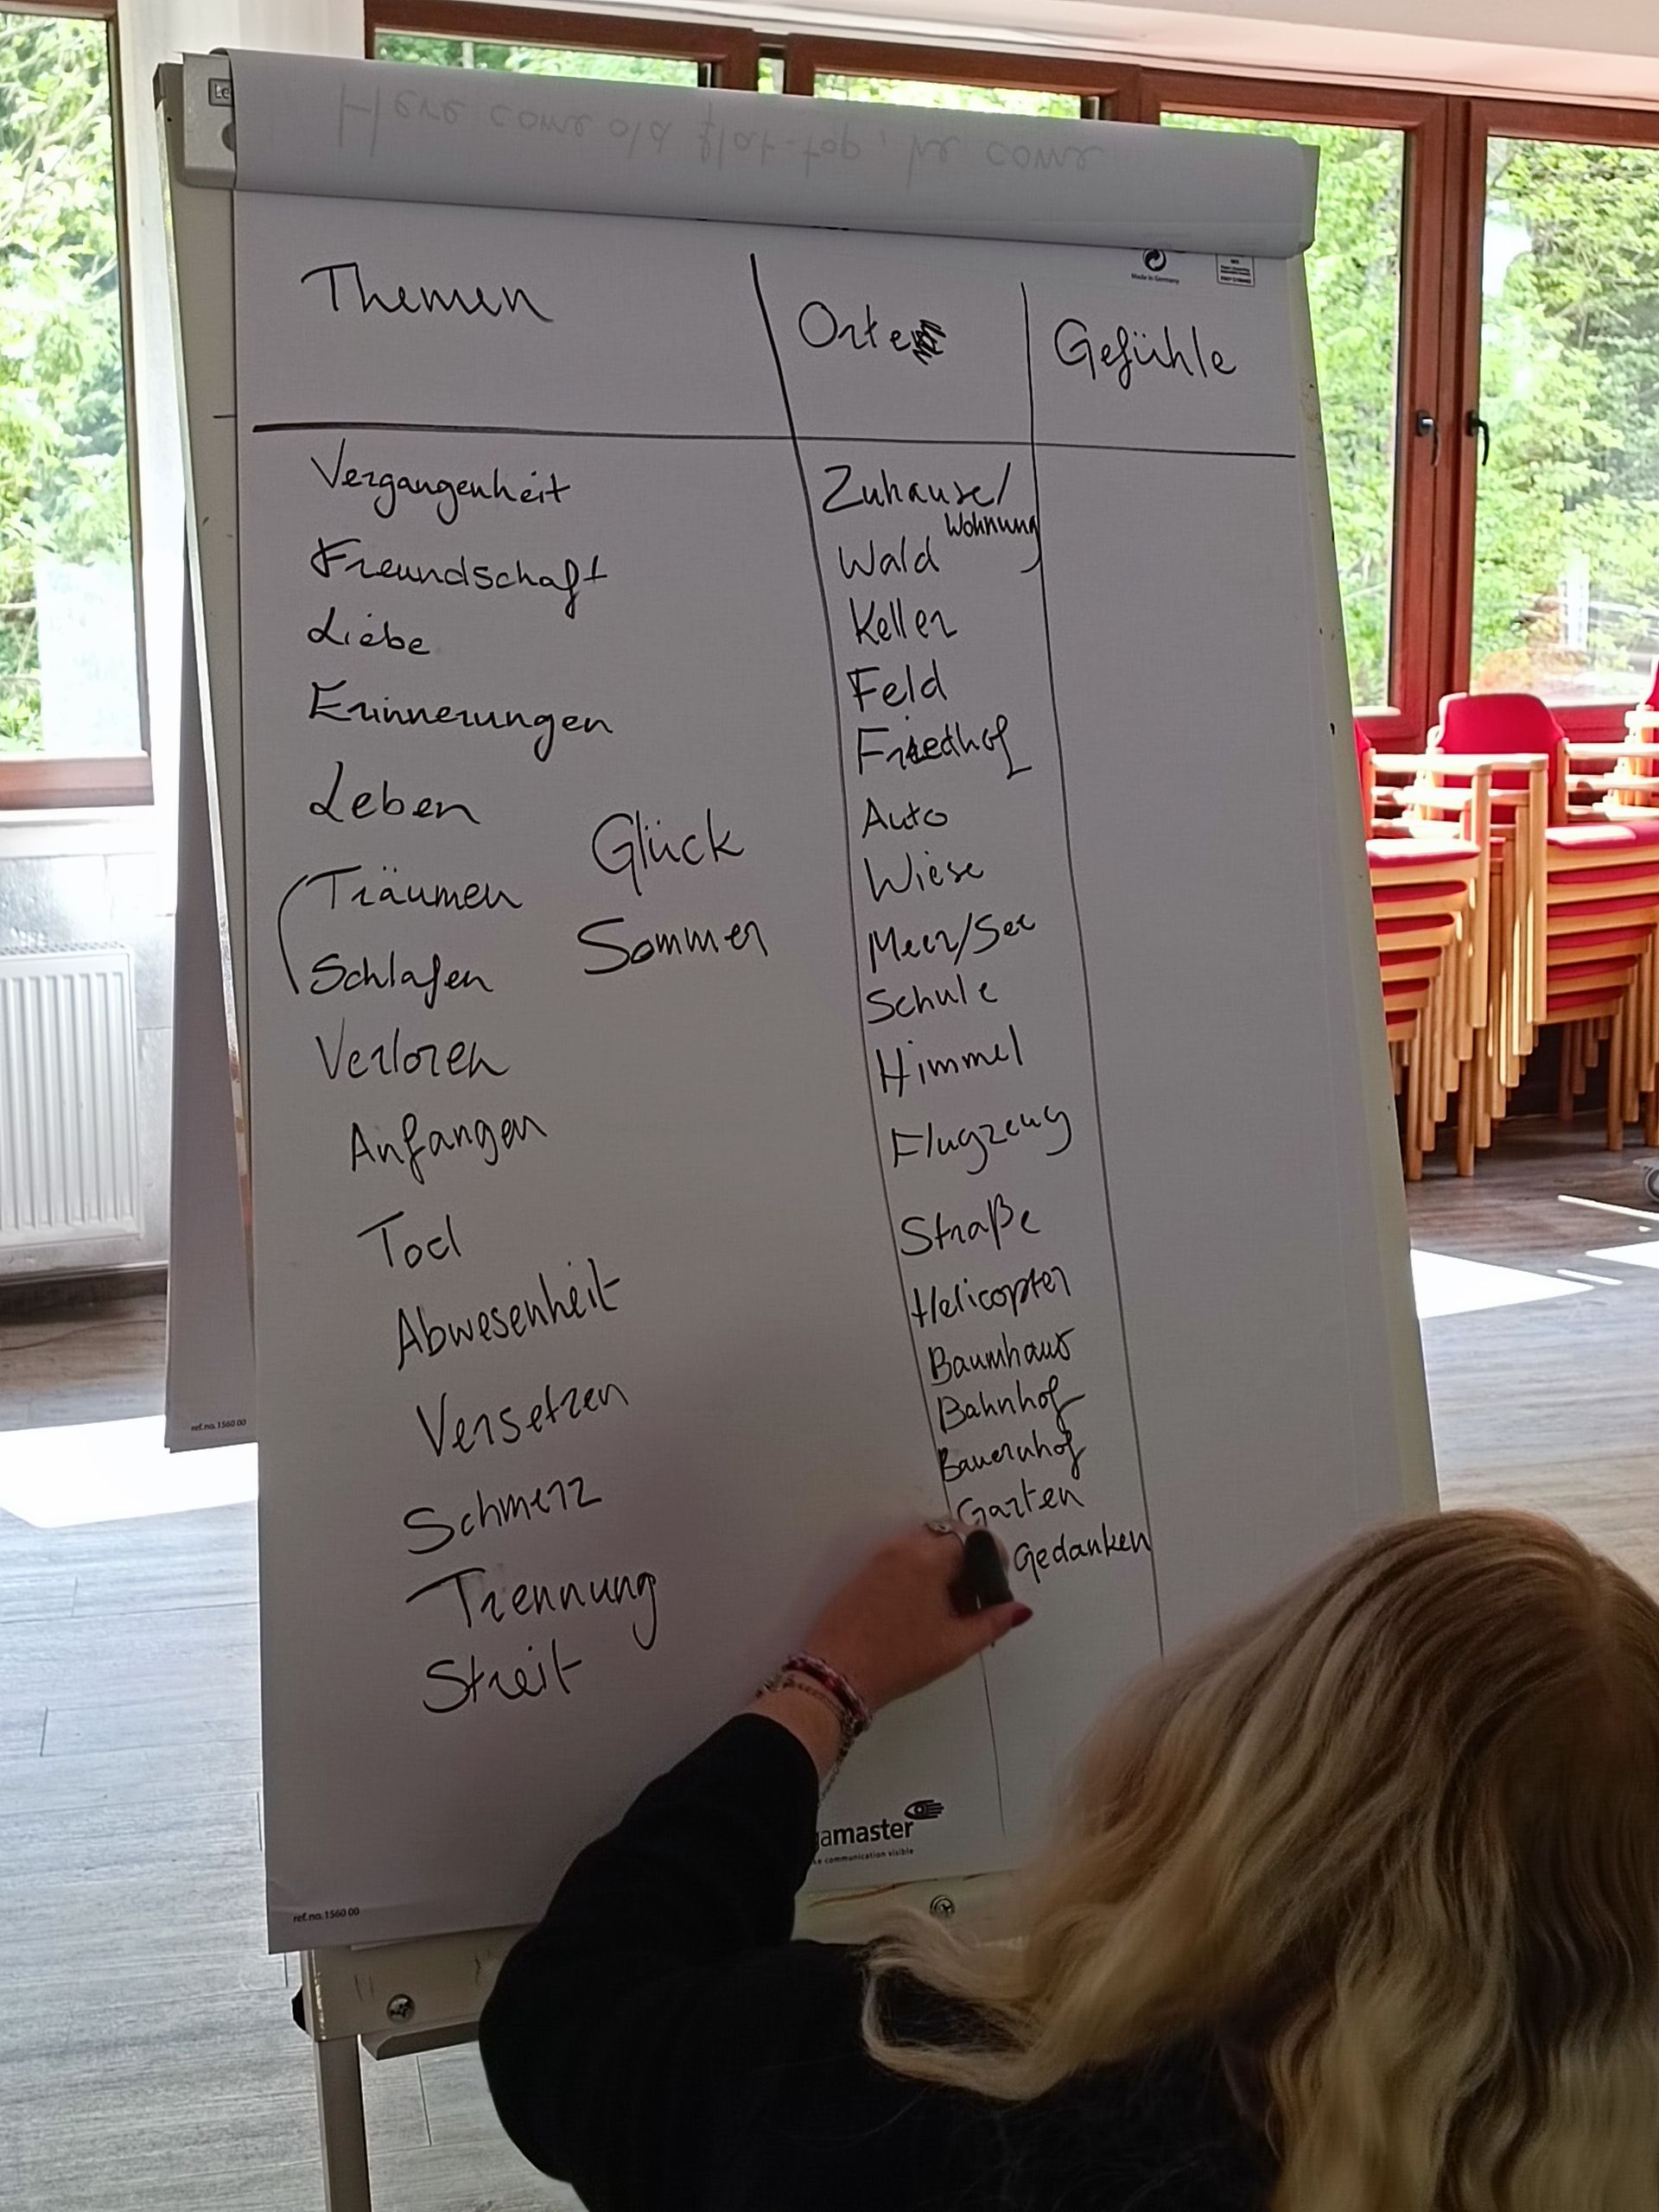 Here come old flat-top, he come
Themen
Orte
Gefühle
Vergangenheit
Freundschaft
Liebe
Erinnerungen
Leben
Träumen
Schlafen
Glück
Sommer
Verloren
Anfangen
Tod
Abwesenheit
Versetzen
Schmerz
Trennung
Streit
Zuhause/
Wohnung
Wald
Keller
Feld
Friedhof
Auto
Wiese
Meer/See
Schule
Himmel
Flugzeug
Straße
Helicopter
Baumhaus
Bahnhof
Bauernhof
Garten
Gedanken
Made in Germany
amaster
communication visible
ref.no. 1560 00
ref.no. 1560 00